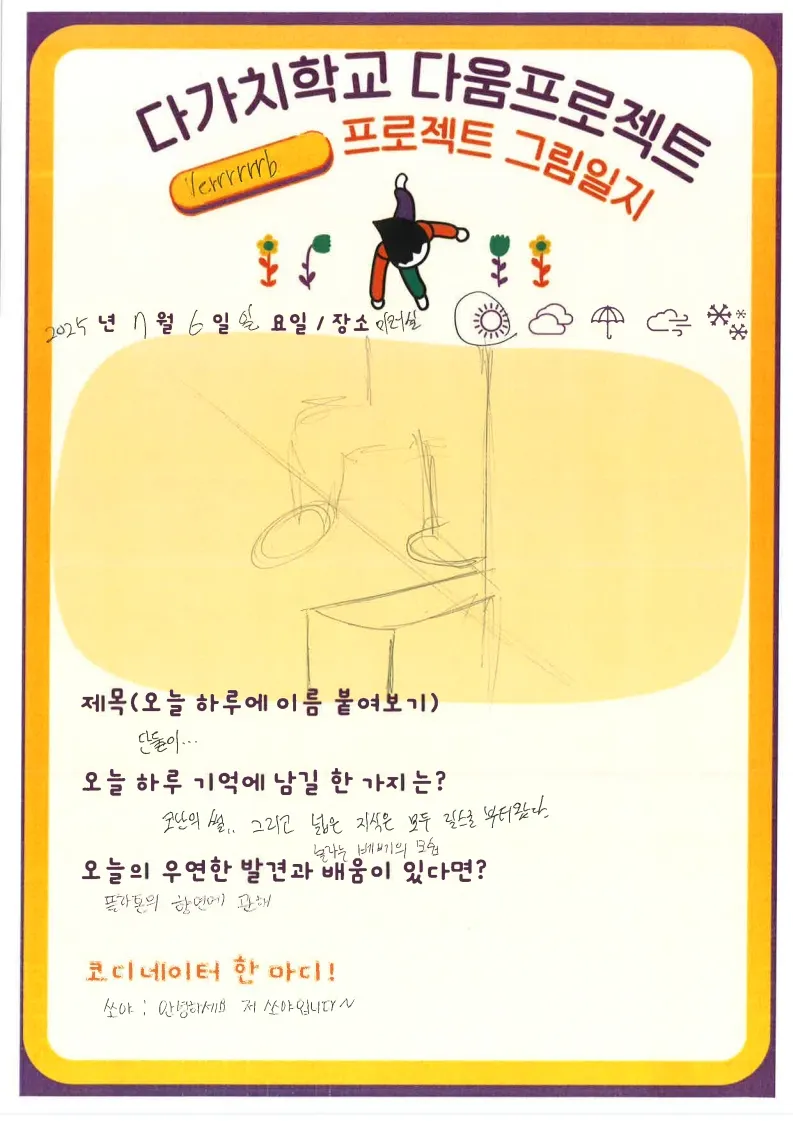 다가치학교 다움프로젝트
프로젝트 그림일지
Verrrrrrb
2025 년 7 월 6 일 일 요일 / 장소 미러실
제목(오늘 하루에 이름 붙여보기)
단둘이...
오늘 하루 기억에 남길 한 가지는?
고난의 별.. 그리고 넓은 지식은 모두 릴스로부터 왔다.
놀라는 베베기의 모험
오늘의 우연한 발견과 배움이 있다면?
플라톤의 향연에 관해
코디네이터 한 마디!
쏘야 : 안녕하세요 저 쏘야입니다~